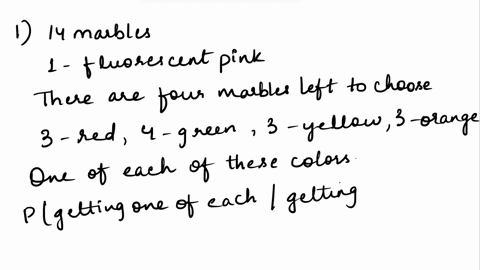 1) 14 marbles
1 - fluorescent pink
There are four marbles left to choose
3 - red, 4 - green, 3 - yellow, 3 - orange
One of each of these colors.
P(getting one of each | getting